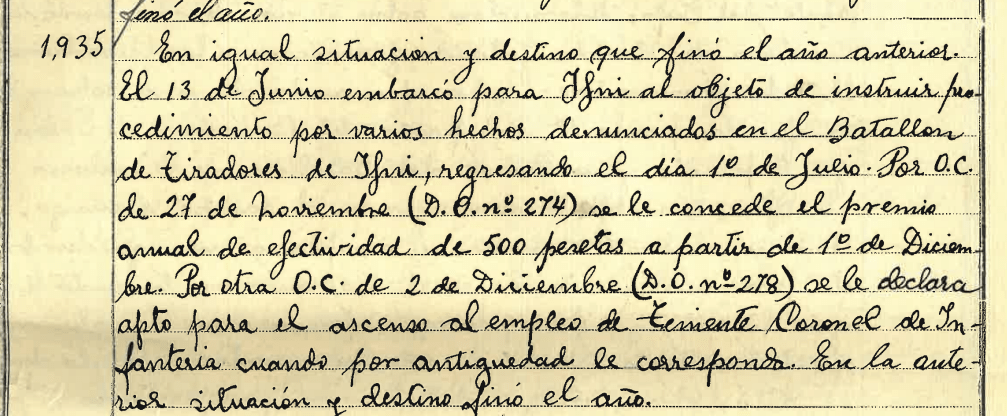 finó el año.
1,935 En igual situación y destino que finó el año anterior.
El 13 de Junio embarcó para Ifni al objeto de instruir pro-
cedimiento por varios hechos denunciados en el Batallon
de Tiradores de Ifni, regresando el día 1º de Julio. Por O.C.
de 27 de Noviembre (D.O. nº 274) se le concede el premio
anual de efectividad de 500 pesetas a partir de 1º de Diciem-
bre. Por otra O.C. de 2 de Diciembre (D.O. nº 278) se le declara
apto para el ascenso al empleo de Teniente Coronel de In-
fantería cuando por antiguedad le corresponda. En la ante-
rior situación y destino finó el año.